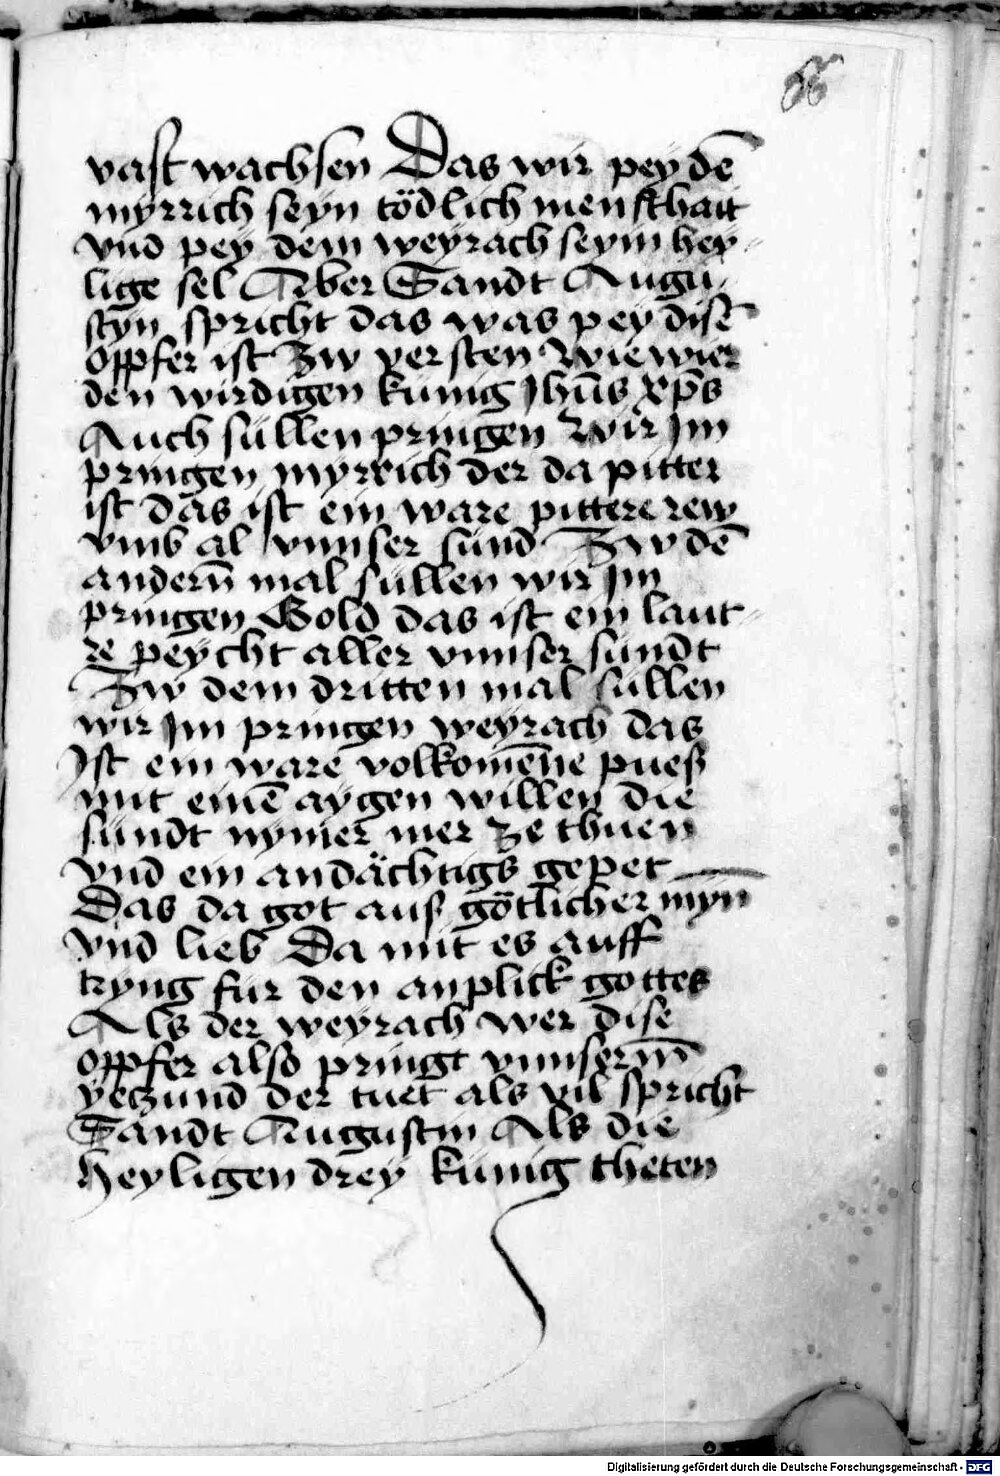 66
vast wachsen Das wir pey dē
myrrich seyn tödlich menschait
vnd pey dem weyrach seyin hey-
lige sel Aber Sandt Augu-
styn spricht das was pey disē
oppfer ist Zw versten Wie wier
den wirdigen kunig Jhūs xp̄s
Auch süllen pringen Wir Im
pringen myrrich der da pitter
ist das ist ein ware pittere rew
vmb al vnnser sünd Zw dē
anderñ mal süllen wir Im
pringen Gold das ist ein laut-
re peycht aller vnnser sundt
Zw dem dritten mal süllen
wir Im pringen weyrach das
Ist ein ware volkomēne pueß
mit einē aygen willen die
sündt nymer mer ze thuen
vnd ein andächtigs gepet
Das da got auß götlicher myn̄
vnd lieb Da mit es auff
tryng für den anplick gottes
Als der weyrach wer dise
oppfer also pringt vnnserm̄
yeczund der tuet als vil spricht
Sandt Augustin Als die
heyligen drey künig theten
Digitalisierung gefördert durch die Deutsche Forschungsgemeinschaft - DFG